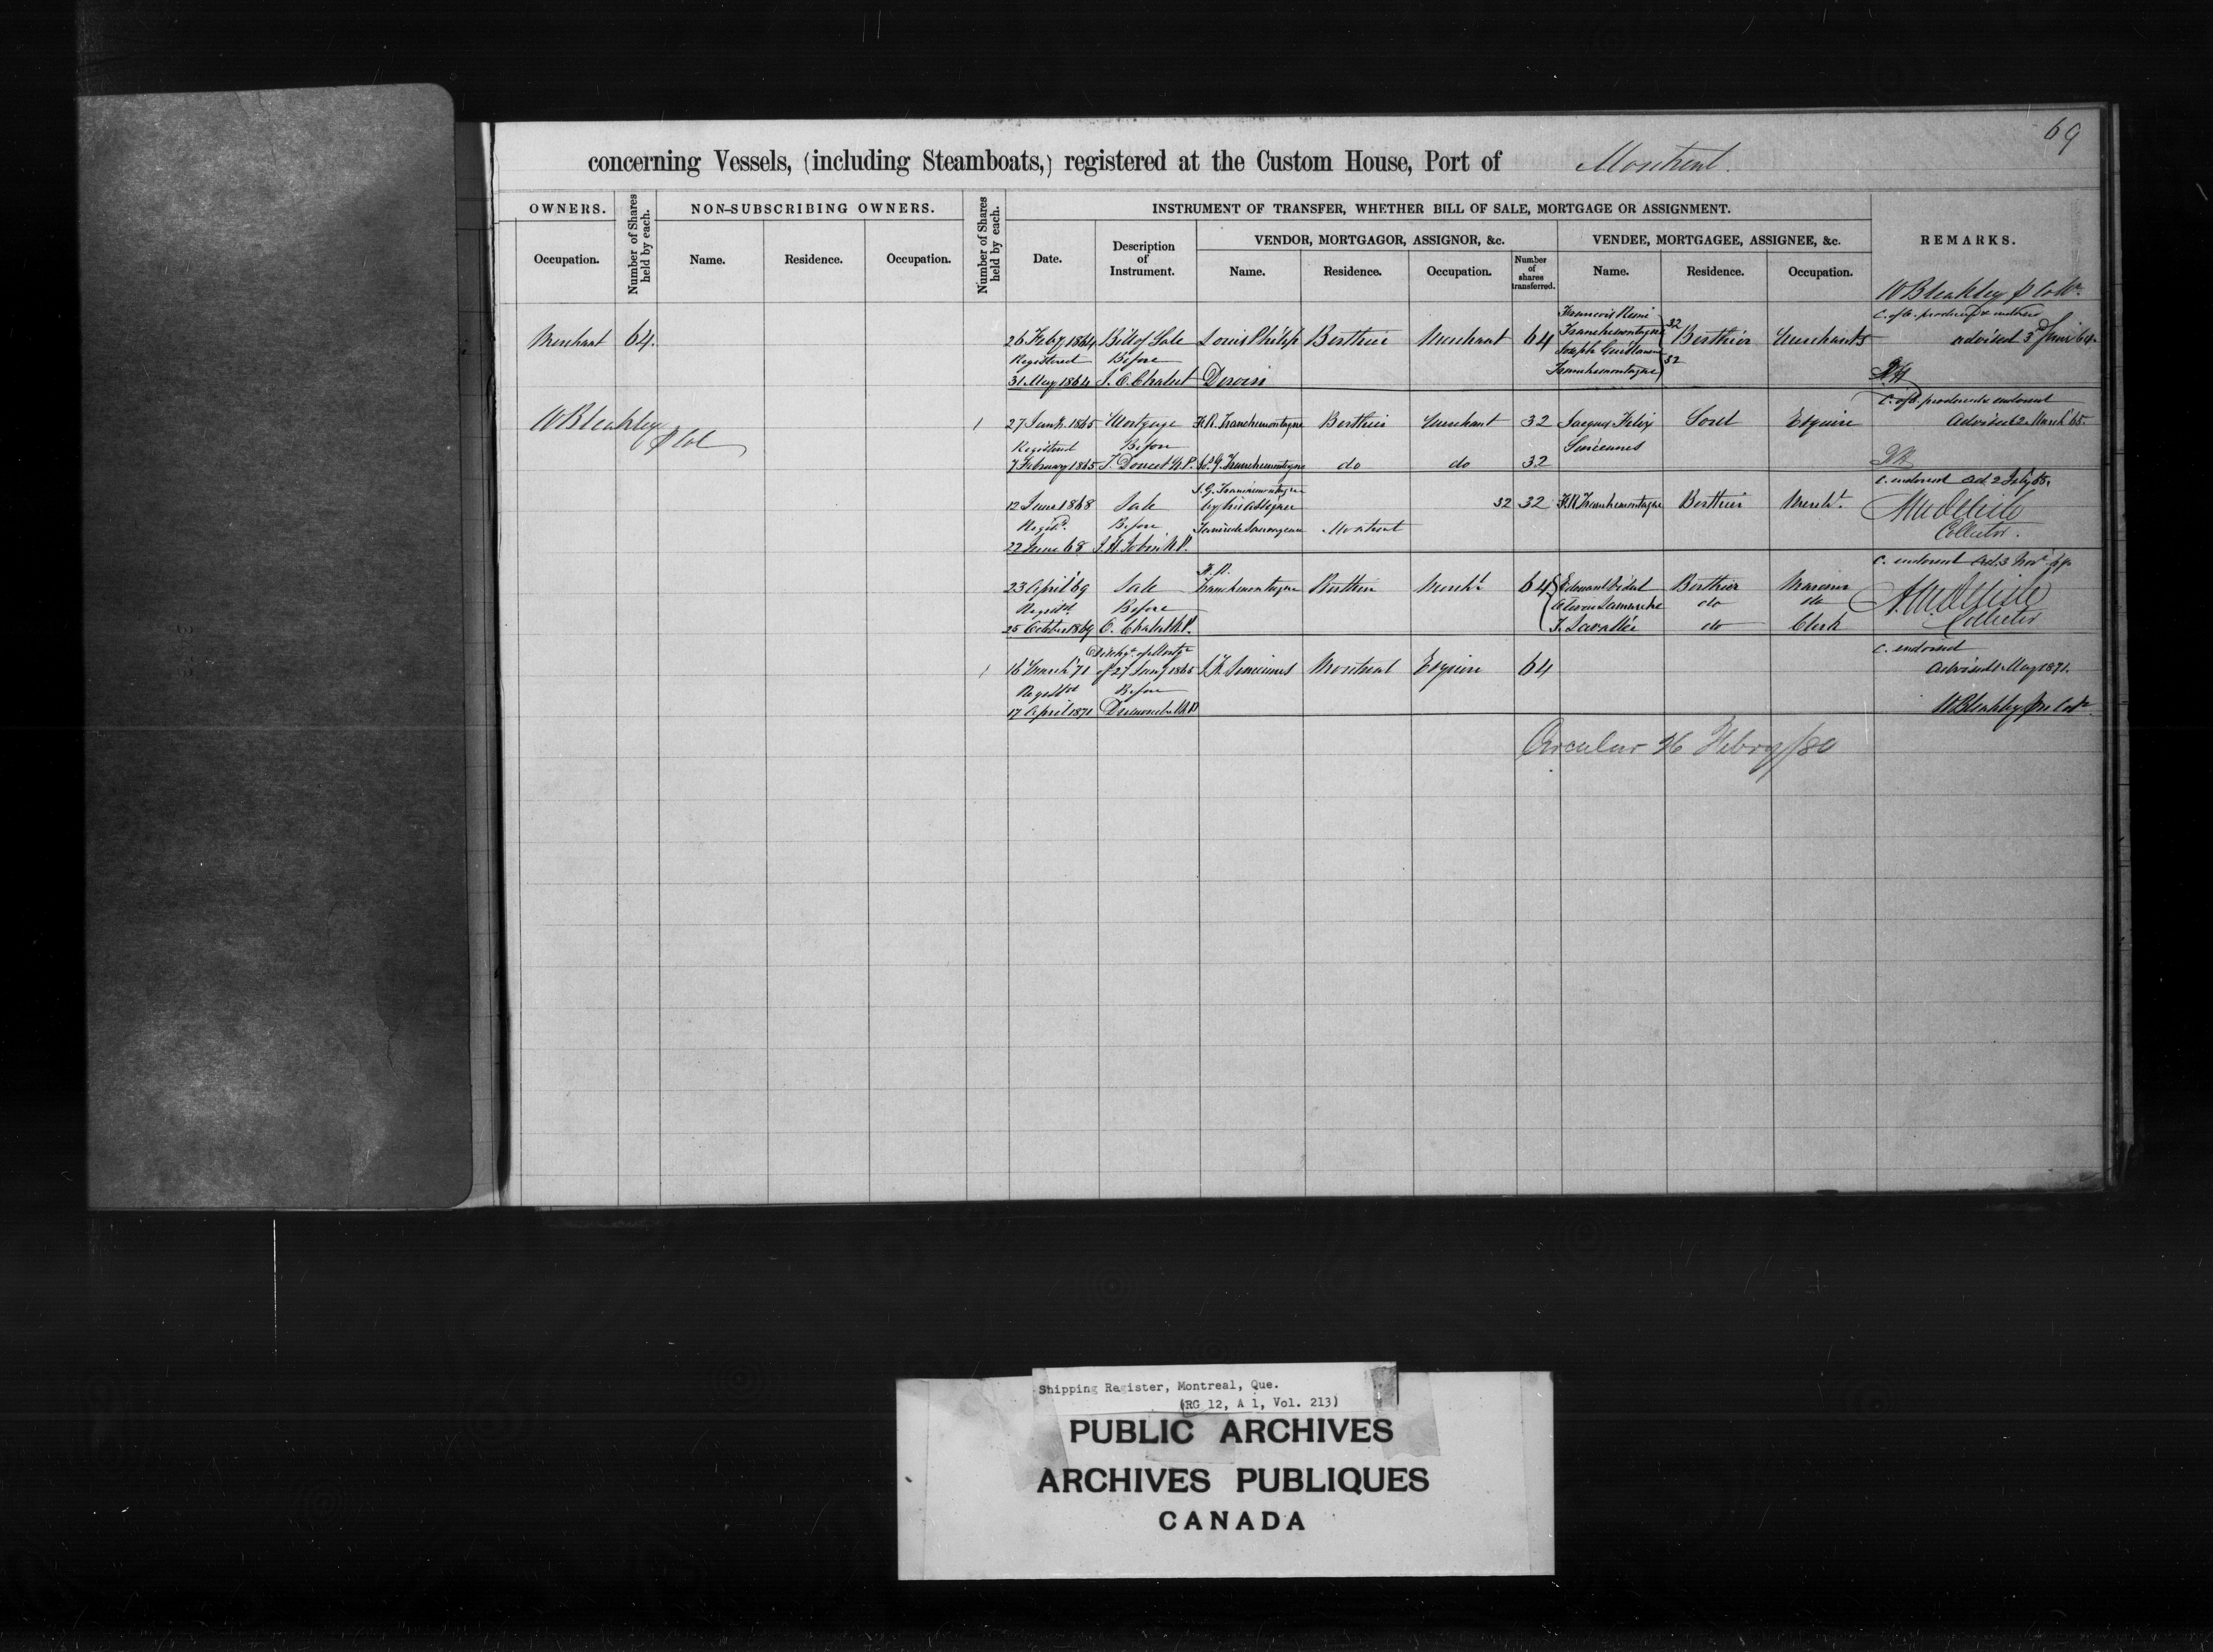 69
concerning Vessels, (including Steamboats,) registered at the Custom House, Port of Montreal.
OWNERS.
Number of Shares held by each.
NON-SUBSCRIBING OWNERS.
Number of Shares held by each.
INSTRUMENT OF TRANSFER, WHETHER BILL OF SALE, MORTGAGE OR ASSIGNMENT.
REMARKS.
Occupation.
Name. Residence. Occupation.
Date.
Description of Instrument.
VENDOR, MORTGAGOR, ASSIGNOR, &c.
VENDEE, MORTGAGEE, ASSIGNEE, &c.
Name. Residence. Occupation.
Number of shares transferred.
Name. Residence. Occupation.
W Bleakley
Merchant 64.
26 Feby 1864 Bill of Sale Louis Philip Berthier Merchant 64
Registered Before
31 May 1864 Chalut
Francois Remi
Tranchemontagne 32
Joseph Guillaume
Tranchemontagne 32
Berthier Merchants
advised 3rd June 64
W Bleakley
p Col
1 27 Jany. 1865 Mortgage F. R. Tranchemontagne Berthier Merchant 32 Jacques Felix Sorel Esquire
Registered Before Sincennes
7 February 1865 T. Doucet N.P. Tranchemontagne do do 32
C. of O. produced & endorsed
Advised 2 March 65.
12 June 1868 Sale
J. G. Tranchemontagne
by his assignee
Montreal
32 32 F. R. Tranchemontagne Berthier Mercht.
Registd. Before
22 June 68 N.P.
C. endorsed
Collector.
23 April 69 Sale
F. R.
Tranchemontagne Berthier Mercht 64
Registd. Before
25 October 1869 Chalut N.P.
Edouard Berthier Mariner
do do
Lavallée do Clerk
C. endorsed Ad. 3 Novr
Collector
1 16 March 71
Dischge. of Mortge
of 27 Jany 1865 J. F. Sincennes Montreal Esquire 64
Registd Before
17 April 1871 N.P.
C. endorsed
Advised 1 May 1871.
W Bleakley
Circular 26 Febry/80
Shipping Register, Montreal, Que.
(RG 12, A 1, Vol. 213)
PUBLIC ARCHIVES
ARCHIVES PUBLIQUES
CANADA